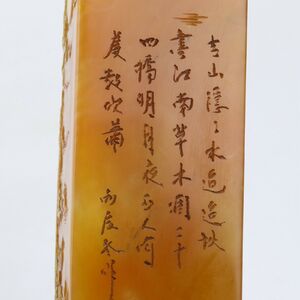 青山隱々水迢迢秋
盡江南草木凋二十
四橋明月夜玉人何
處教吹簫 丙辰冬作